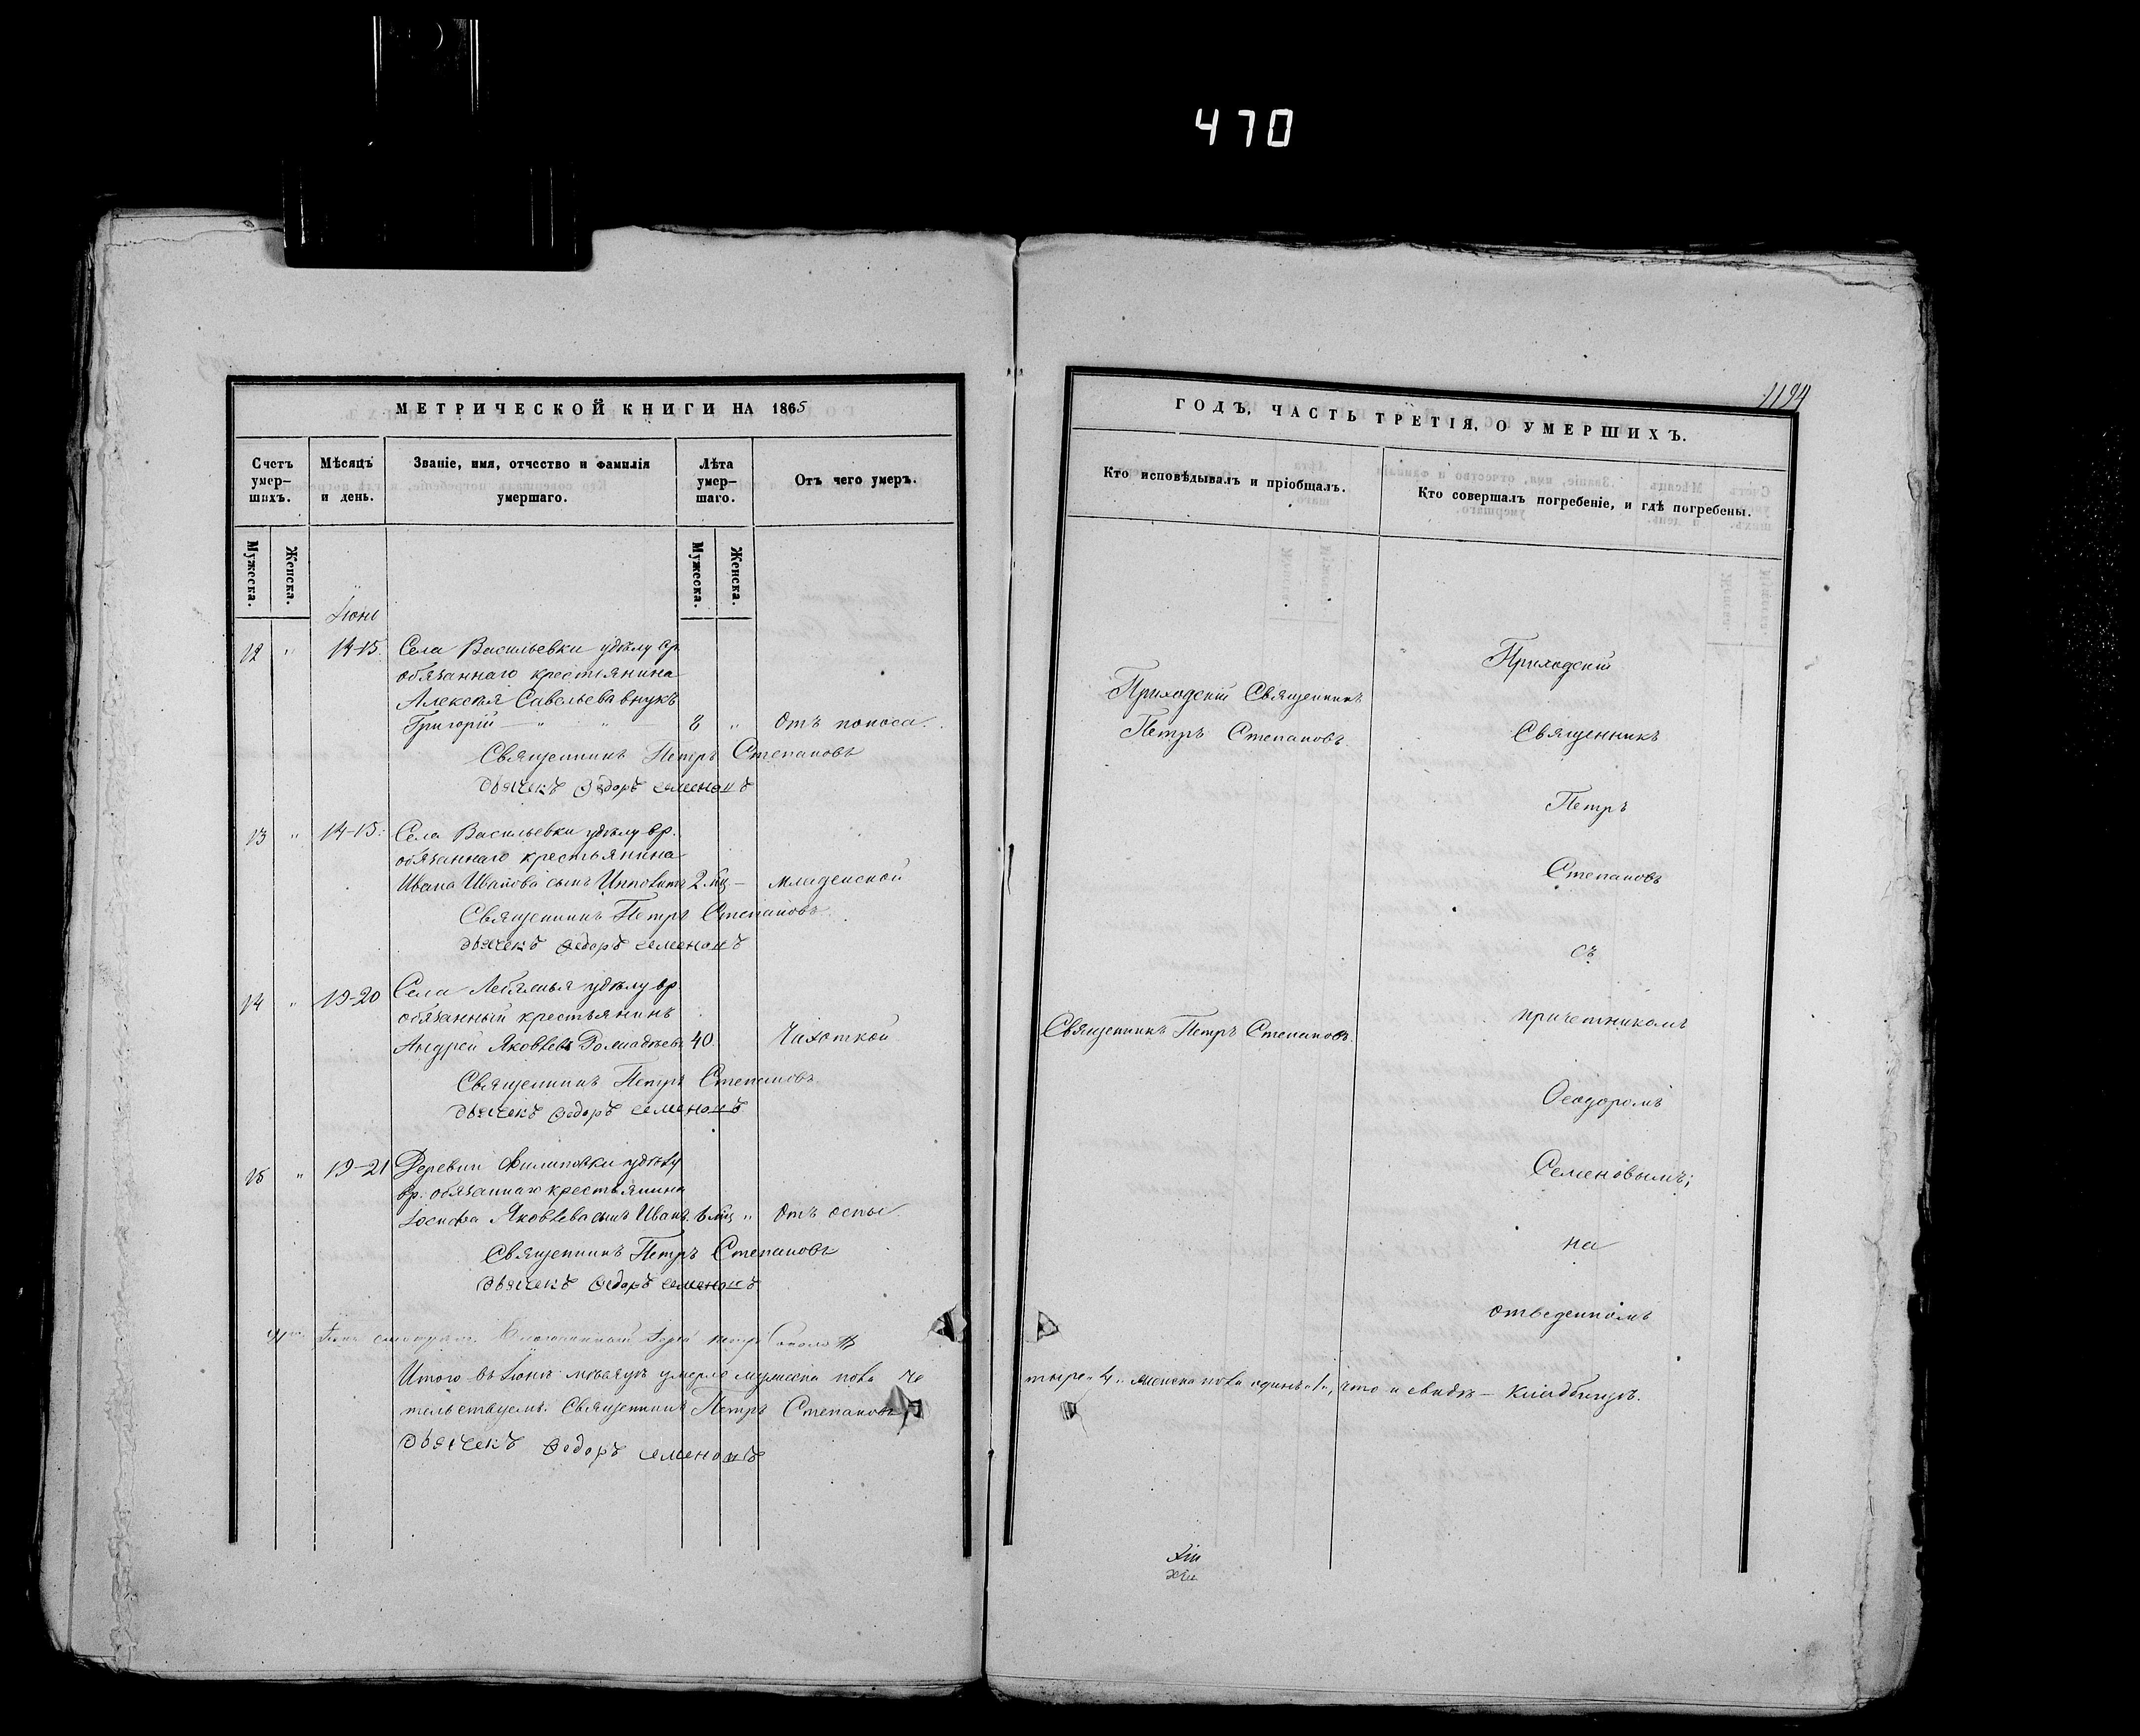 470
МЕТРИЧЕСКОЙ КНИГИ НА 1865
Счетъ умер-шихъ.
Мѣсяцъ и день.
Званіе, имя, отчество и фамилія умершаго.
Лѣта умер-шаго.
Отъ чего умеръ.
Мужеска.
Женска.
Мужеска.
Женска.
Іюнь
12 " 14-15. Села Васильевки удѣлу вр.
обязаннаго крестьянина
Алексѣя Савельева внукъ
Григорій — " " 8 " Отъ поноса.
Священникъ Петръ Степановъ
Дьячекъ Ѳедоръ Семеновъ
13 " 14-15. Села Васильевки удѣлу вр.
обязаннаго крестьянина
Ивана Иванова сынъ Ипполитъ 2 мц — младенской
Священникъ Петръ Степановъ
Дьячекъ Ѳедоръ Семеновъ
14 " 19-20 Села Лебяжья удѣлу вр
обязанный крестьянинъ
Андрей Яковлевъ 40 Чихоткой
Священникъ Петръ Степановъ
Дьячекъ Ѳедоръ Семеновъ
15 " 19-21 Деревни Филиповки удѣлу
вр. обязаннаго крестьянина
Іосифа Яковлева сынъ Иванъ. 6 мц " Отъ оспы
Священникъ Петръ Степановъ
Дьячекъ Ѳедоръ Семеновъ
Итого въ Іюнѣ мѣсяцѣ умерло мужеска пола че
тельствуемъ. Священникъ Петръ Степановъ
Дьячекъ Ѳедоръ Семеновъ
1194
ГОДЪ, ЧАСТЬ ТРЕТІЯ, О УМЕРШИХЪ.
Кто исповѣдывалъ и пріобщалъ.
Кто совершалъ погребеніе, и гдѣ погребены.
Приходскій Священникъ
Петръ Степановъ
Священникъ Петръ Степановъ.
Приходскій
Священникъ
Петръ
Степановъ
съ
причетникомъ
Ѳеодоромъ
Семеновымъ;
на
отведенномъ
тыре "4" женска пола одинъ "1", что и свидѣ — кладбищѣ.